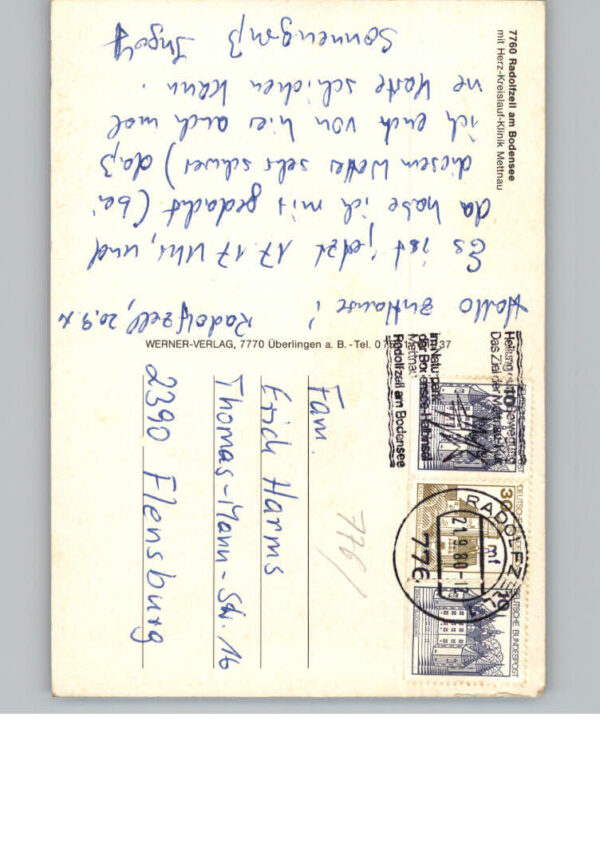 7760 Radolfzell am Bodensee
mit Herz-Kreislauf-Klinik Mettnau
Radolfzell, 20.9.
Hallo Zuhause!
Es ist jetzt 17.17 Uhr, und
da habe ich mir gedacht (bei
diesem Wetter sehr schwer) daß
ich euch von hier auch mal
ne Karte schicken kann.
Sonnengruß Ingolf
WERNER-VERLAG, 7770 Überlingen a. B. - Tel. 37
Heilung durch Bewegung
Das Ziel der Mettnau-Kur
Mettnau
Radolfzell am Bodensee
10
30
10
DEUTSCHE BUNDESPOST
RADOLFZELL
21.9.80
mf
776
776/
Fam.
Erich Harms
Thomas-Mann-Str. 16
2390 Flensburg